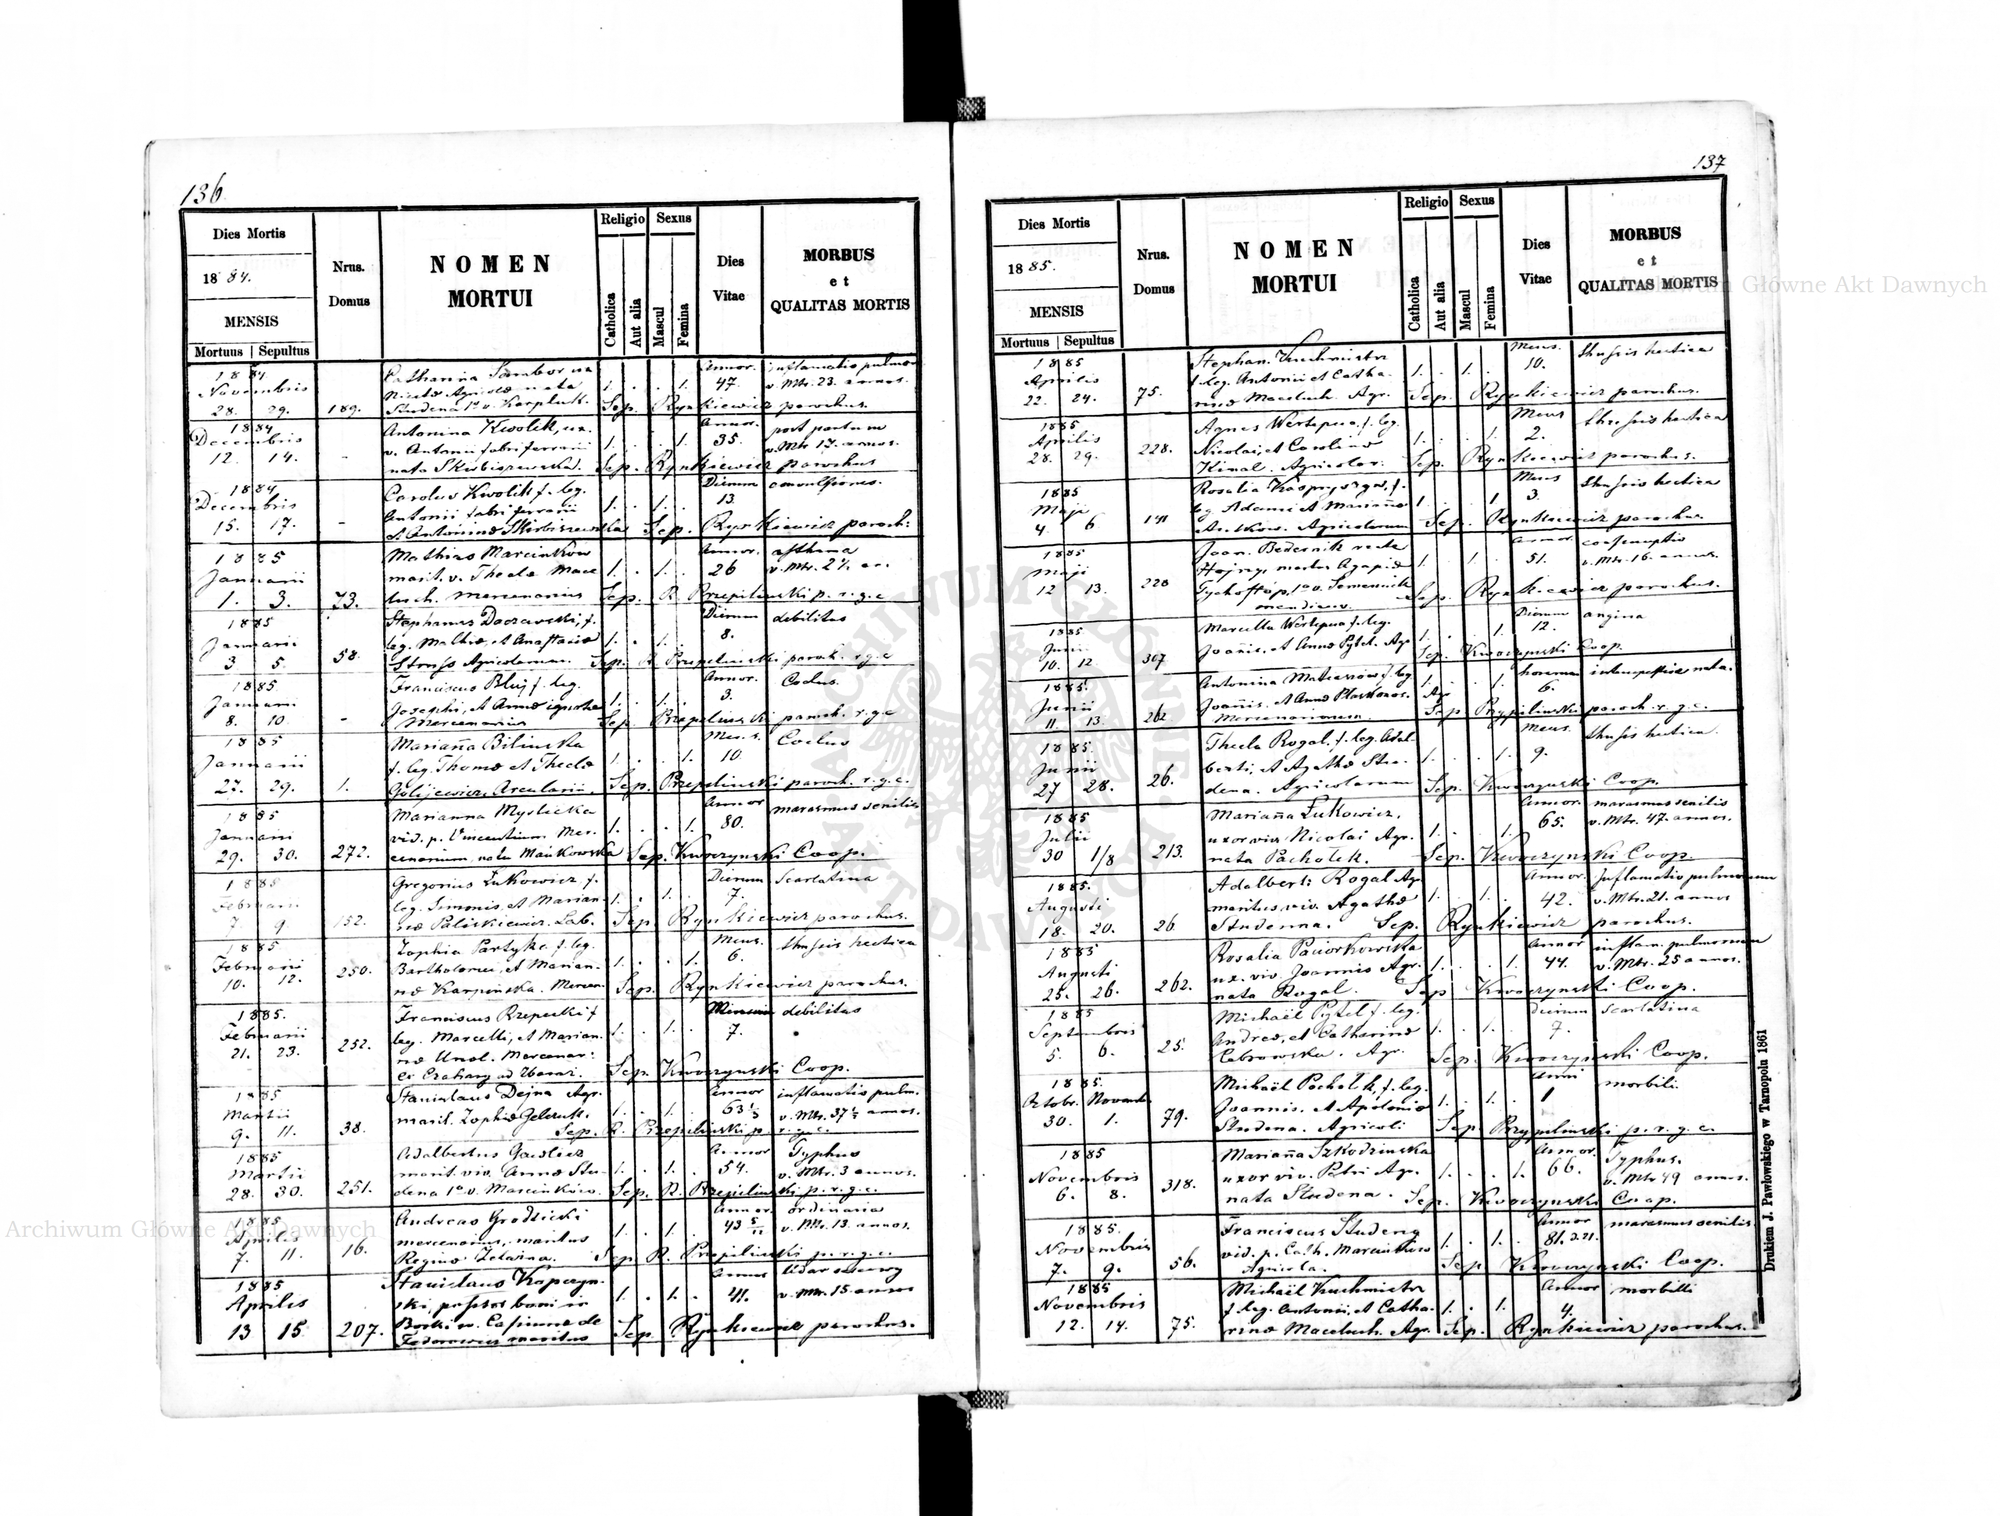 136.
Dies Mortis
1884.
MENSIS
Mortuus | Sepultus
Nrus. Domus
NOMEN MORTUI
Religio
Catholica
Aut alia
Sexus
Mascul
Femina
Dies Vitae
MORBUS et QUALITAS MORTIS
1884 Catharina Sambor Annor. inflamatio pulmon
Novembris Agricolæ nata 1. . . 1. 47. v. Mtr. 23. annos.
28. 29. 189. Studena 1º v. Karpluk. Sep. Rynkiewicz parochus.
1884 Antonina Kwolik, ux. Annor. post partum
Decembris v. Antonii fabri ferrarii 1. . . 1. 35. v. Mtr 17. annos.
12. 14. - nata Skirbiszewska. Sep. Rynkiewicz parochus
1884 Carolus Kwolik, f. leg. Dierum convulsiones.
Decembris Antonii fabri ferrarii 1. . 1. . 13.
15. 17. - et Antoninæ Skirbiszewska Sep. Rynkiewicz paroch:
1885 Mathias Marcinków Annor. asthma
Januarii marit. v. Theclæ Mace 1. . 1. . 26
1. 3. 73. luch. mercenarius Sep. R. Przepilinski p. r. g. c.
1885 Stephanus Daczewski, f. Dierum debilitas
Januarii leg. et Anastasiæ 1. . 1. . 8.
3 5. 58. Agricolarum. Sep. R. Przepilinski paroch. r. g. c
1885 Franciscus Bluj f. leg. Annor.
Januarii Josephi, et Annæ 1. . 1. . 3.
8. 10 - Mercenarius Sep. Przepilinski paroch. r. g. c
1885 Marianna Bilinska Mens.
Januarii f. leg. Thomæ et Theclæ 1. . . 1. 10.
27. 29. 1. Golijewicz. Arcularii. Sep. Przepilinski paroch. r. g. c.
1885 Marianna Myslicka Annor marasmus senilis
Januarii vid. p. Vincentium Mer. 1. . . 1. 80.
29. 30. 272. cenarium, nata Mańkowska Sep. Kwoczynski Coop.
1885 Gregorius Łukowicz f. Dierum Scarlatina
Februarii leg. Simonis, et Marian. 1. . 1. . 7.
7 9 152. næ Sep. Rynkiewicz parochus.
1885 Zophia Partyka f. leg. Mens. thysis hectica
Februarii Bartholomei, et Marian. 1. . . 1. 6.
10. 12. 250. næ Karpińska. Mercen. Sep. Rynkiewicz parochus.
1885. Franciscus Rzepecki f debilitas
Februarii leg. Marcelli, et Marian. 1. . 1. . 7.
21. 23. 252. næ Unol. Mercenar:
ad Zbaraż. Sep. Kwoczynski Coop.
1885 Stanislaus Dejna Agr. Annor inflamatio pulm.
Martii marit. Zophiæ 1. . 1. . 63 v. Mtr. 37½ annos.
9. 11. 38. Sep. R. Przepilinski p. r. g. c.
1885 Adalbertus Annor Typhus
Martii marit. viv. Annæ Stu 1. . 1. . 54. v. Mtr. 3 annos.
28. 30. 251. dena 1º v. Marcinków. Sep. R. Przepilinski p. r. g. c.
1885 Andreas Grodzicki Annor. ordinaria
Aprilis mercenarius, maritus 1. . 1. . 43 v. Mtr. 13. annos.
7. 11. 16. Reginæ Żelazna. Sep. R. Przepilinski p. r. g. c.
1885 Stanislaus Kopczyn Annor
Aprilis ski, possor boni in 1. . 1. . 41. v. Mtr. 15 annos
13 15 207. Borki v. Casimiræ de
Fedorowicz maritus Sep. Rynkiewicz parochus.
137
Dies Mortis
1885.
MENSIS
Mortuus | Sepultus
Nrus. Domus
NOMEN MORTUI
Religio
Catholica
Aut alia
Sexus
Mascul
Femina
Dies Vitae
MORBUS et QUALITAS MORTIS
1885 Stephan. Kuchmistrz Mens. thysis hectica
Aprilis f. leg. Antonii et Catha. 1. . 1. . 10.
22. 24. 75. rinæ Maceluch. Agr. Sep. Rynkiewicz parochus.
1885 Agnes Wertepna, f. leg. Mens thysis hectica
Aprilis Nicolai, et Carolinæ 1. . . 1. 2.
28. 29. 228. Kinal. Agricolar. Sep. Rynkiewicz parochus.
1885 Rosalia f. Mens thysis hectica
Maji leg. Adami et Mariannæ 1. . . 1 3.
4 6 141 Agricolarum Sep. Rynkiewicz parochus.
1885 Joan. Bedernik recte Annor. consumptio
Maji Hojny, maritus Agapiæ 1. . 1. . 51. v. Mtr. 16. annos.
12 13. 228 1º v. Semeniuk
mendicus. Sep. Rynkiewicz parochus.
1885 Marcella Wertepna f. leg. Dierum angina
Junii Joannis, et Annæ Pytel. Agr 1. . . 1. 12.
10. 12. 307 Sep. Kwoczynski Coop.
1885. Antonina f. leg horarum intempestive nata.
Junii Joannis, et Annæ 1. . . 1. 6.
11. 13. 262 Mercenariorum Sep Przypilinski paroch. r. g. c.
1885 Thecla Rogal, f. leg. Adal Mens. thysis hectica.
Junii berti, et Agathæ Stu 1. . . 1. 9.
27 28. 26. dena. Agricolarum Sep. Kwoczynski Coop.
1885 Marianna Łukowicz, Annor. marasmus senilis
Julii uxor viv. Nicolai Agr. 1. . . 1. 65. v. Mtr. 47. annos.
30 1/8 213. nata Pacholek. Sep. Kwoczynski Coop.
1885. Adalberti Rogal Agr. Annor. Inflamatio pulmonum
Augusti maritus, viv. Agathæ 1. . 1. . 42. v. Mtr. 21. annos
18. 20. 26. Studenna. Sep. Rynkiewicz parochus.
1885 Rosalia Paciorkowska Annor inflam. pulmonum
Augusti ux. viv. Joannis Agr. 1. . . 1. 44. v. Mtr. 25 annos.
25. 26. 262. nata Rogal. Sep Kwoczynski Coop.
1885 Michaël Pytel f. leg. dierum scarlatina
Septembris Andreæ, et Catharinæ 1. . 1. . 7.
5. 6. 25. Agr. Sep. Kwoczynski Coop.
1885. Michaël Pacholek, f. leg. Anni morbili
Octobr. Novemb Joannis. et Apoloniæ 1. . 1. . 1
30. 1. 79. Studena. Agricoli Sep Przypilinski p. r. g. c.
1885 Marianna Szkodzinska Annor. Typhus.
Novembris uxor viv. Petri Agr. 1. . . 1. 66. v. Mtr 49 annos.
6. 8. 318. nata Studena. Sep. Kwoczynski Coop.
1885. Franciscus Studeny Annor marasmus senilis
Novembris vid. p. Cath. Marcinków 1. . 1. . 81. d. 21.
7. 9. 56. Agricola. Sep Kwoczynski Coop.
1885 Michaël Kuchmistrz Annor morbilli
Novembris f. leg. Antonii, et Catha. 1. . 1. 4.
12. 14. 75. rinæ Maceluch. Agr. Sep. Rynkiewicz parochus.
Drukiem J. Pawłowskiego w Tarnopolu 1861
Archiwum Główne Akt Dawnych
Archiwum Główne Akt Dawnych
ARCHIWUM GŁÓWNE AKT DAWNYCH